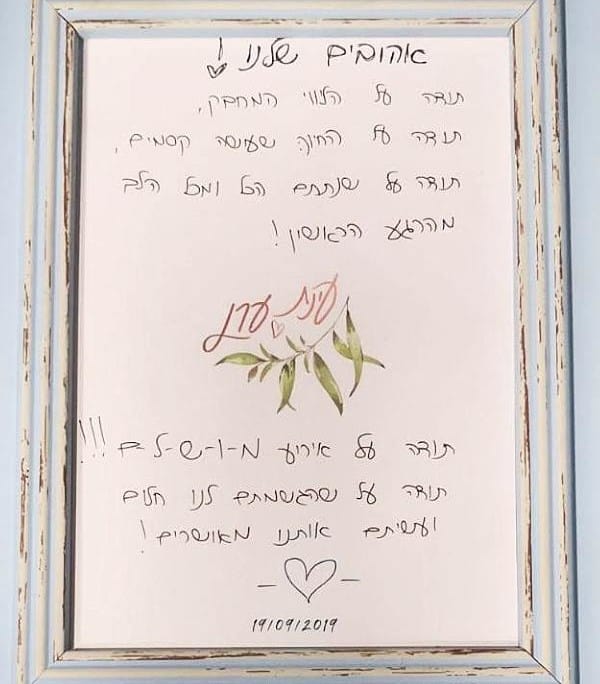 אהובים שלנו!
תודה על הליווי המחבק,
תודה על החיוך שעושה קסמים,
תודה על שנתתם הכל ומכל הלב
מהרגע הראשון!
עינת ערן
תודה על אירוע מ-ו-ש-ל-ם!!!
תודה על שהגשמתם לנו חלום
ועשיתם אותנו מאושרים!
19/09/2019